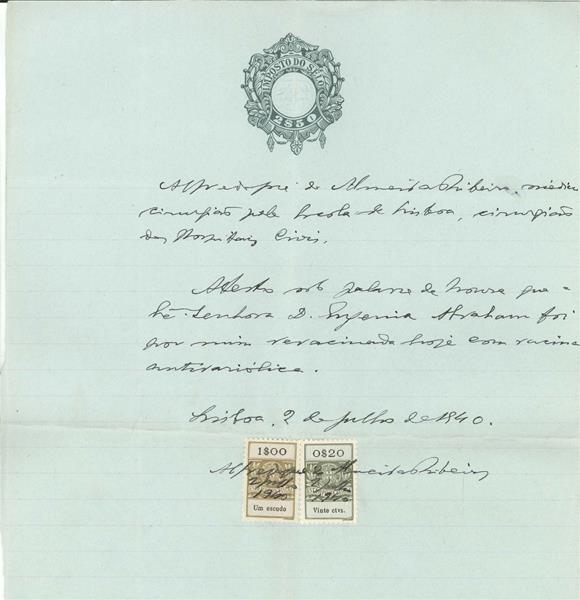 IMPOSTO DO SELO
2$50
Alfredo José de Almeida Ribeiro, médico
cirurgião pela Escola de Lisboa, cirurgião
dos Hospitais Civis.
Atesto sob palavra de honra que a
Senhora D. Eugenia Abraham foi
por mim revacinada hoje com vacina
antivariólica.
Lisboa, 2 de Julho de 1940.
1$00 0$20
Alfredo José de Almeida Ribeiro
2 Julho 2 Julho
1940 1940
Um escudo Vinte ctvs.